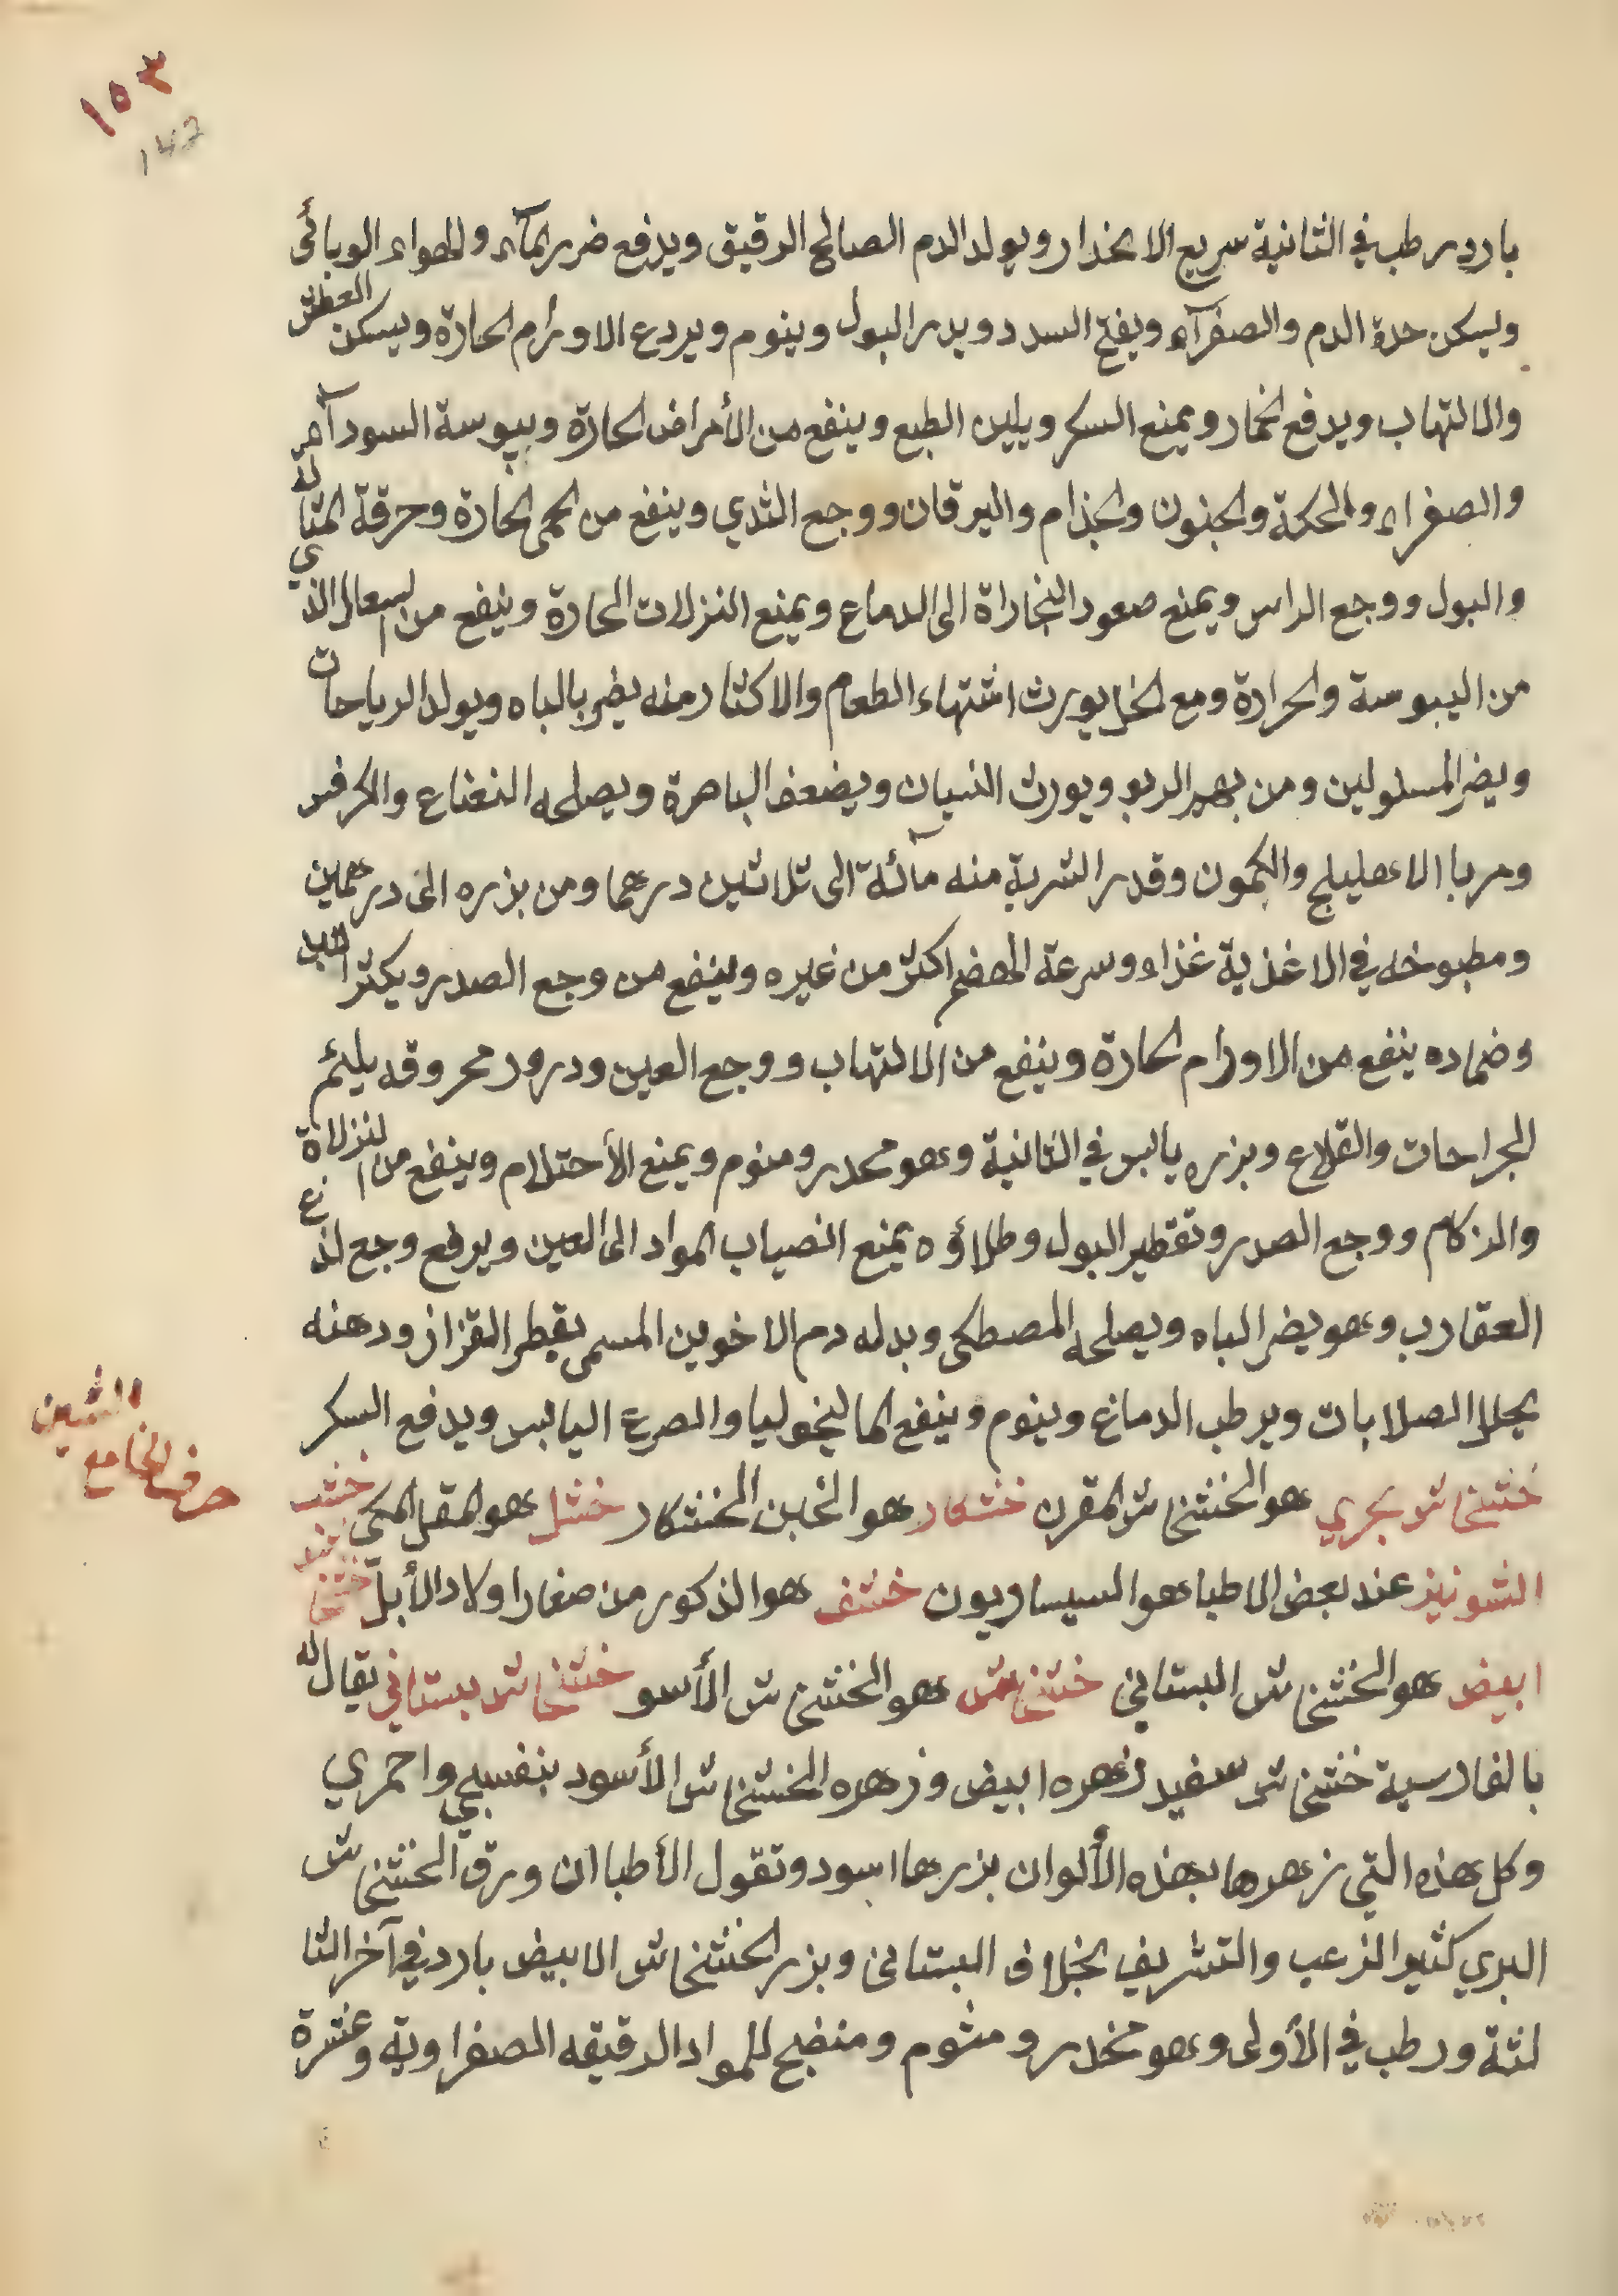 ١٥٣
147
بارد رطب في الثانية سريع الانحدار ويولد الدم الصالح الرقيق ويدفع ضرر المآء والهواء الوبائى
ويسكن حدة الدم والصفرآء ويفتح السدد ويدر البول وينوم ويردع الاورام الحارة ويسكن العطش
والالتهاب ويدفع الخمار ويمنع السكر ويلين الطبع وينفع من الأمراض الحارة ويبوسة السودآء
والصفراء والحكة والجنون والجذام واليرقان ووجع الثدي وينفع من الحمى الحارة وحرقة المثانة
والبول ووجع الراس ويمنع صعود البخاراة الى الدماغ ويمنع النزلات الحارة وينفع من السعال الذي
من اليبوسة والحرارة ومع الخل يورث اشتهاء الطعام والاكثار منه يضر بالباه ويولد الرياحات
ويضر المسلولين ومن بهم الربو ويورث النسيان ويضعف الباصرة ويصلحه النعناع والكرفس
ومربا الاهليلج والكمون وقدر الشربة منه مآئة الى ثلاثين درهما ومن بزره الى درهمين
ومطبوخه في الاغذية غذاء وسرعة الهضم اكثر من غيره وينفع من وجع الصدر ويكثر اللبن
وضماده ينفع من الاورام الحارة وينفع من الالتهاب ووجع العين ودرور محروقه يلئم
الجراحات والقلاع وبزره يابس في الثانية وهو مخدر ومنوم ويمنع الأحتلام وينفع من النزلاة
والزكام ووجع الصدر وتقطير البول وطلاؤه يمنع انصباب المواد الى العين ويرفع وجع لذع
العقارب وهو يضر الباه ويصلحه المصطكى وبدله دم الاخوين المسمى بقطر القزاز ودهنه
يحلل الصلابات ويرطب الدماغ وينوم وينفع الماليخوليا والصرع اليابس ويدفع السكر
خشخاش بحري هو الخشخاش المقرن خشكار هو الخابن الخشكار خشل هو المقل المكي
الشونيز عند بعض الاطبا هو السيساريون خشف هو الذكور من صغار اولاد الأبل خشخا
ابيض هو الخشخاش البستاني خشخاش هو الخشخاش الأسو خشخاش بستاني يقال له
بالفارسية خشخاش سفيد زهره ابيض وزهره الخشخاش الأسود بنفسجي واحمري
وكل هذه التي زهرها بهذه الألوان بزرها اسود وتقول الأطبا ان ورق الخشخاش
البري كثير الزعب والتشريف بخلاف البستانى وبزر الخشخاش الابيض بارد في آخر الثا
لثة ورطب في الأولى وهو مخدر ومنوم ومنضج للمواد الرقيقه الصفراوية وعشرة
حرف الخا مع الشين